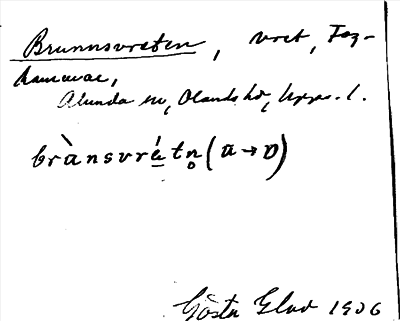 Brunnsvreten, vret, Fez-
hamarae,
Alunda sn, Olands hd, Upps. l.
brànsvrétn̥ (a→ʋ)
Gösta Elav 1906